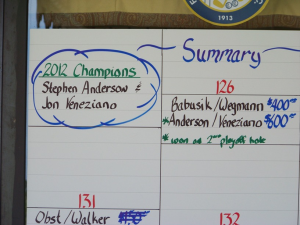 1913
Summary
2012 Champions
Stephen Anderson &
Jon Veneziano
126
Babusik/Wegmann $400
*Anderson/Veneziano $600
* won on 2nd playoff hole
131
Obst/Walker
132